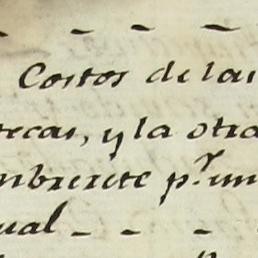 Costos de las
tecas, y la otra
mbrerete pr. un
ual